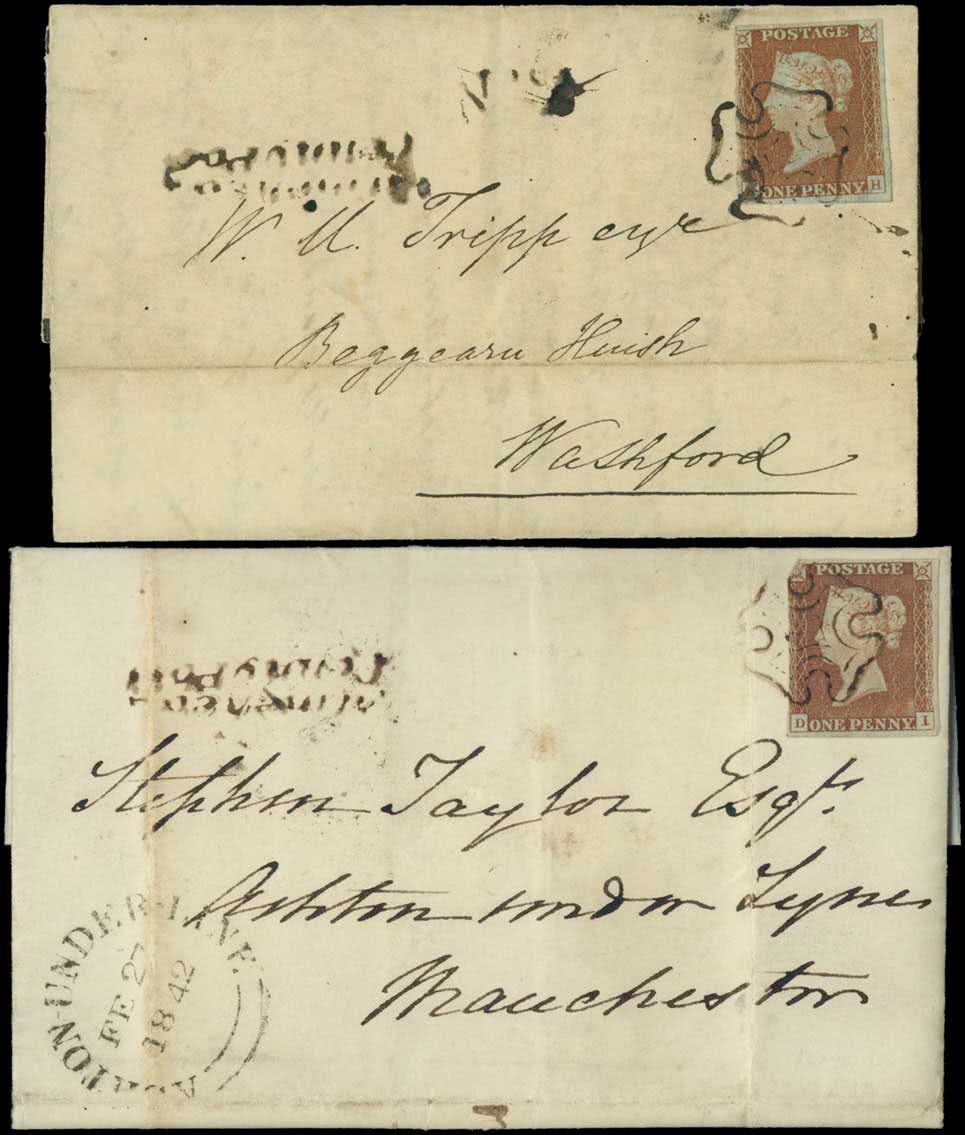 POSTAGE
ONE PENNY H
W. U. Tripp esqre
Beggearn Huish
Washford
POSTAGE
D ONE PENNY I
Penny Post
Stephen Taylor Esqr.
Ashton under Lyne
Manchester
ASHTON-UNDER-LINE
FE 27
1842